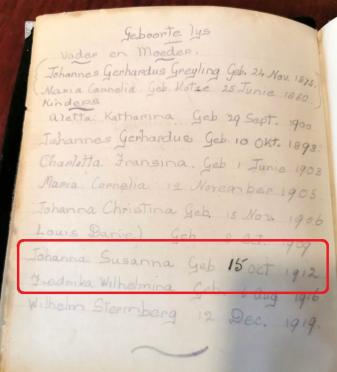 Geboorte lys
Vader en Moeder.
Johannes Gerhardus Greyling Geb. 24 Nov. 1875.
Maria Cornelia Geb. Kotze 25 Junie 1880.
Kinders
Aletta Katharina Geb 29 Sept. 1900
Johannes Gerhardus Geb 10 Okt.
Charlotta Fransina. Geb 1 Junie 1903
Maria Cornelia 12 November 1905
Johanna Christina Geb. 15 Nov 1906
Louis Daniel Geb 1909
Johanna Susanna Geb 15 oct 1912
Fredrika Wilhelmina Geb. Aug 1916
Wilhelm Sternberg 12 Dec. 1919.